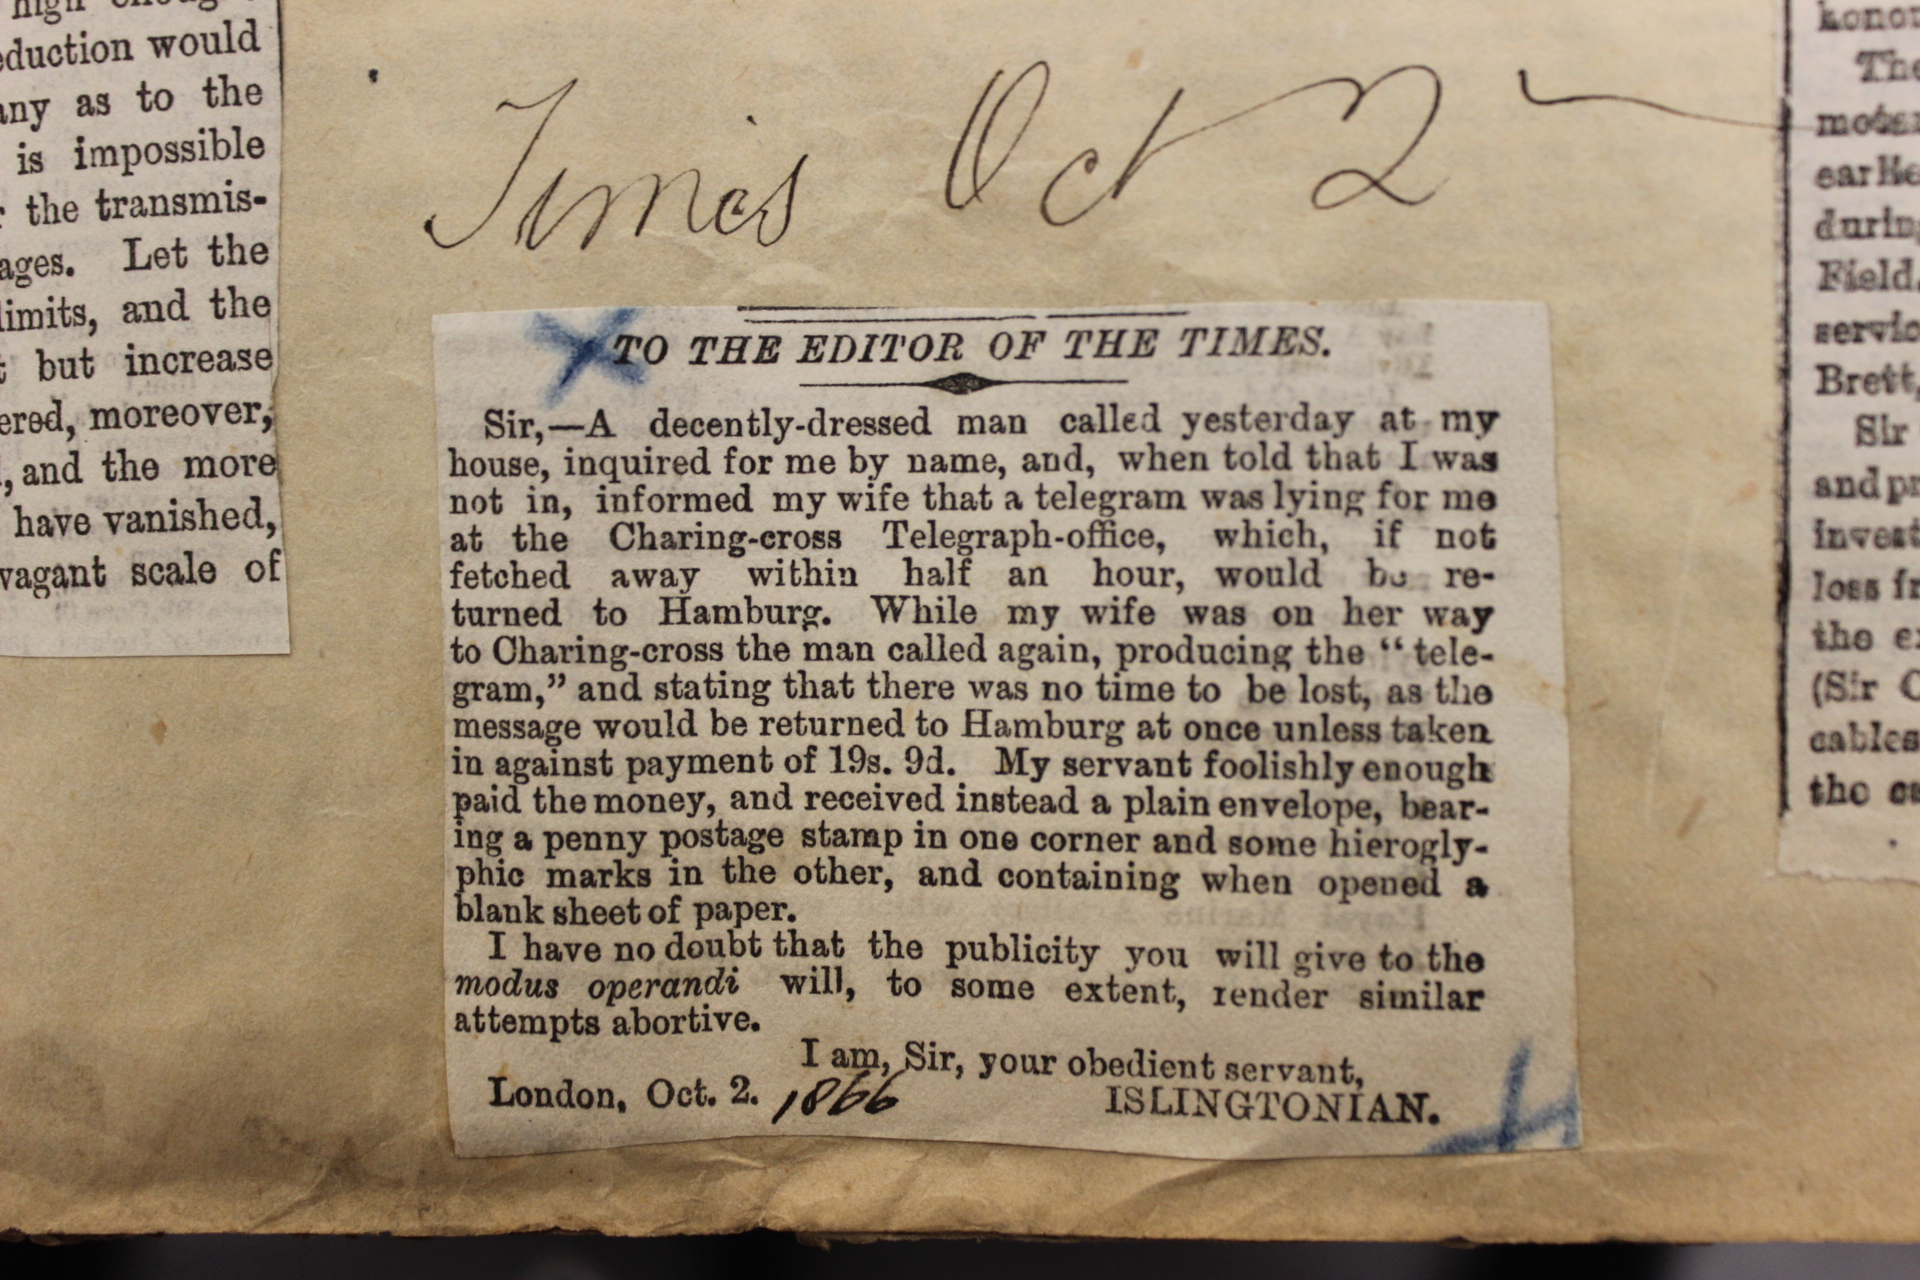 high
eduction would
any as to the
is impossible
the transmis-
ages. Let the
limits, and the
but increase
ered, moreover,
, and the more
have vanished,
vagant scale of
Times Oct 2
TO THE EDITOR OF THE TIMES.
Sir,—A decently-dressed man called yesterday at my
house, inquired for me by name, and, when told that I was
not in, informed my wife that a telegram was lying for me
at the Charing-cross Telegraph-office, which, if not
fetched away within half an hour, would be re-
turned to Hamburg. While my wife was on her way
to Charing-cross the man called again, producing the “ tele-
gram,” and stating that there was no time to be lost, as the
message would be returned to Hamburg at once unless taken
in against payment of 19s. 9d. My servant foolishly enough
paid the money, and received instead a plain envelope, bear-
ing a penny postage stamp in one corner and some hierogly-
phic marks in the other, and containing when opened a
blank sheet of paper.
I have no doubt that the publicity you will give to the
modus operandi will, to some extent, render similar
attempts abortive.
I am, Sir, your obedient servant,
London, Oct. 2. 1866 ISLINGTONIAN.
honou
The
motan
earlie
during
Field,
servic
Brett,
Sir
and pr
invest
loss fr
the ex
(Sir C
cables
the ca